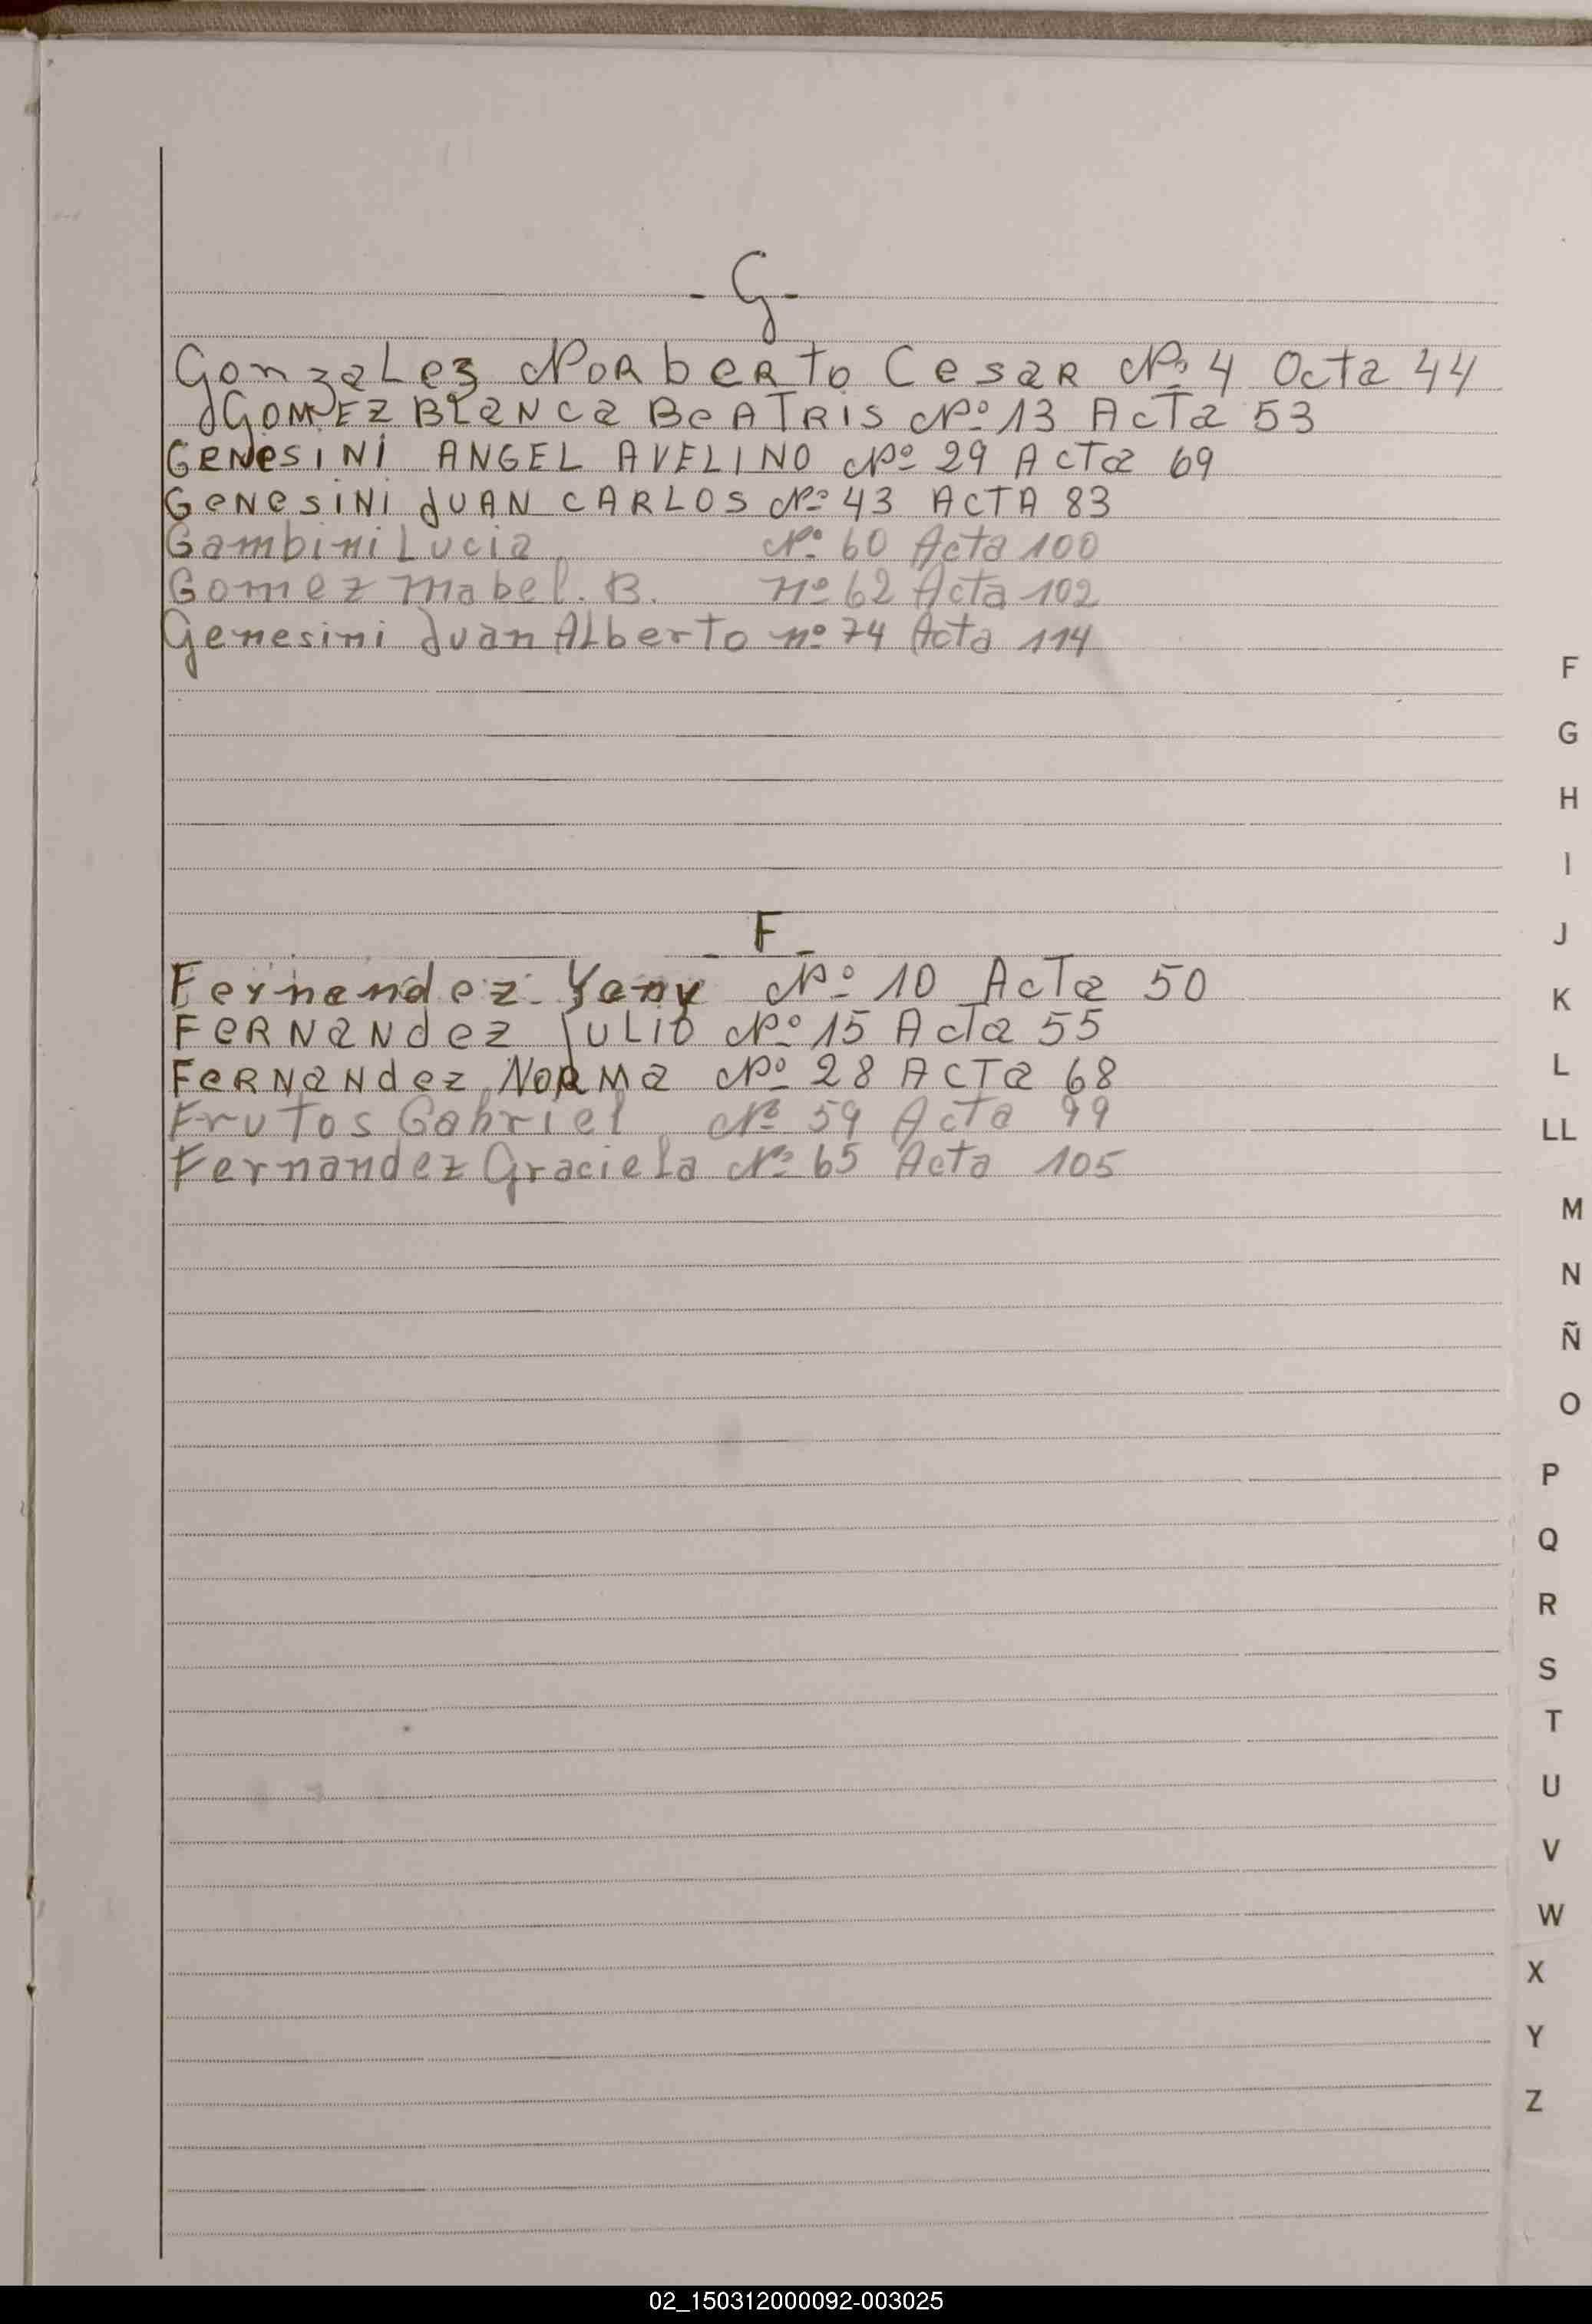 - G -
Gonzalez Norberto Cesar Nº 4 Octa 44
GOMEZ BLANCA BEATRIS Nº 13 ACTA 53
GENESINI ANGEL AVELINO Nº 29 ACTA 69
GENESINI JUAN CARLOS Nº 43 ACTA 83
Gambini Lucia Nº 60 Acta 100
Gomez Mabel. B. nº 62 Acta 102
Genesini Juan Alberto nº 74 Acta 114
- F -
Fernandez Nº 10 Acta 50
FERNANDEZ JULIO Nº 15 Acta 55
FERNANDEZ NORMA Nº 28 ACTA 68
Frutos Gabriel Nº 59 Acta 99
Fernandez Graciela Nº 65 Acta 105
F
G
H
I
J
K
L
LL
M
N
Ñ
O
P
Q
R
S
T
U
V
W
X
Y
Z
02_150312000092-003025